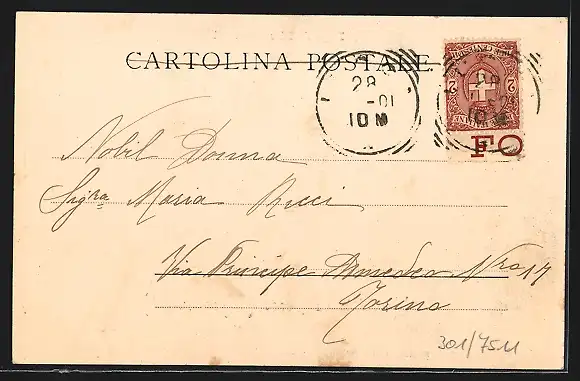 CARTOLINA POSTALE
28
-01
10 M
28
10 M
2 2
FO
Nobil Donna
Sigra Maria Ricci
Via Principe Amedeo Nro 17
Torino
301/7511